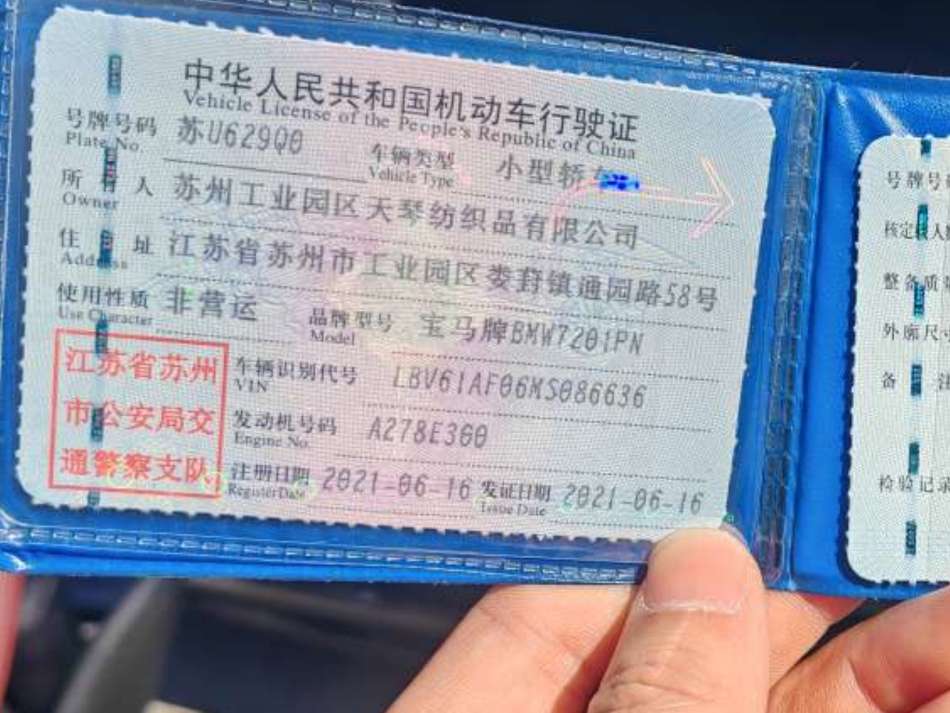 中华人民共和国机动车行驶证
Vehicle License of the People's Republic of China
号牌号码 苏U629Q0 车辆类型 小型轿
Plate No. Vehicle Type
所 人 苏州工业园区天琴纺织品有限公司
Owner
住 址 江苏省苏州市工业园区娄葑镇通园路58号
Address
使用性质 非营运 品牌型号 宝马牌BMW7201PN
Use Character Model
江苏省苏州
市公安局交
通警察支队
车辆识别代号 LBV61AF06MS086636
VIN
发动机号码 A278E360
Engine No.
注册日期 2021-06-16 发证日期 2021-06-16
Register Date Issue Date
号牌号
核定 人
整备质
外廓尺
备
检验记录